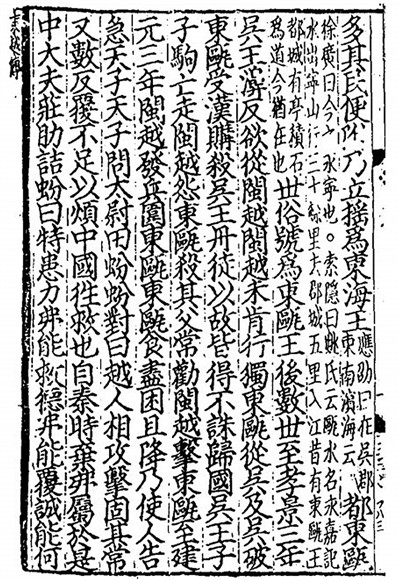 多其民便附乃立搖為東海王應劭曰在吳郡東南濱海云都東甌
徐廣曰今之永寧也○索隱曰姚氏云甌水名永嘉記
水出寧山行三十餘里去郡城五里入江昔有東甌王
都城有亭積石為道今猶在也世俗號為東甌王後數世至孝景三年
吳王濞反欲從閩越閩越未肯行獨東甌從吳及吳破
東甌受漢購殺吳王丹徒以故皆得不誅歸國吳王子
子駒亡走閩越怨東甌殺其父常勸閩越擊東甌至建
元三年閩越發兵圍東甌東甌食盡困且降乃使人告
急天子天子問大尉田蚡蚡對曰越人相攻擊固其常
又數反覆不足以煩中國往救也自秦時棄弗屬於是
中大夫莊助詰蚡曰特患力弗能救德弗能覆誠能何
東越傳